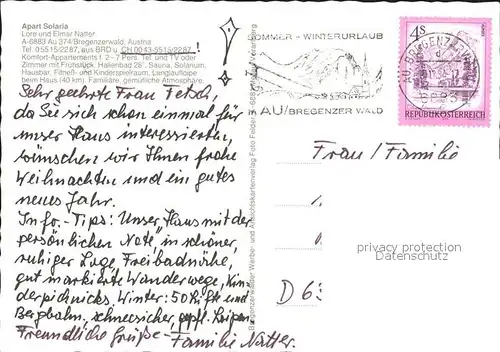 Apart Solaria
Lore und Elmar Natter
A-6883 Au 374/Bregenzerwald, Austria
Tel. 05515/2287, aus BRD u. CH 0043-5515/2287 !
Komfort-Appartements f. 2-7 Pers. Tel. und TV oder
Zimmer mit Frühstück. Hallenbad 28°, Sauna, Solarium,
Hausbar, Fitneß- und Kinderspielraum, Langlaufloipe
beim Haus (40 km). Familiäre, gemütliche Atmosphäre.
Sehr geehrte Frau Fetsch,
da Sie sich schon einmal für
unser Haus interessierten,
wünschen wir Ihnen frohe
Weihnachten und ein gutes
neues Jahr.
Info.-Tips: Unser Haus mit der
persönlichen Note, in schöner,
ruhiger Lage Freibadnähe,
gut markierte Wanderwege, Kin-
derpicknicks, Winter: 50 Lifte und
Bergbahn, schneesicher, gepfl. Loipen
Freundliche Grüße - Familie Natter.
SOMMER - WINTERURLAUB
AU/BREGENZER WALD
AU, BREGENZERWALD
6883
4S
REPUBLIK ÖSTERREICH
Frau/Familie
D 63
privacy protection
DSGVO